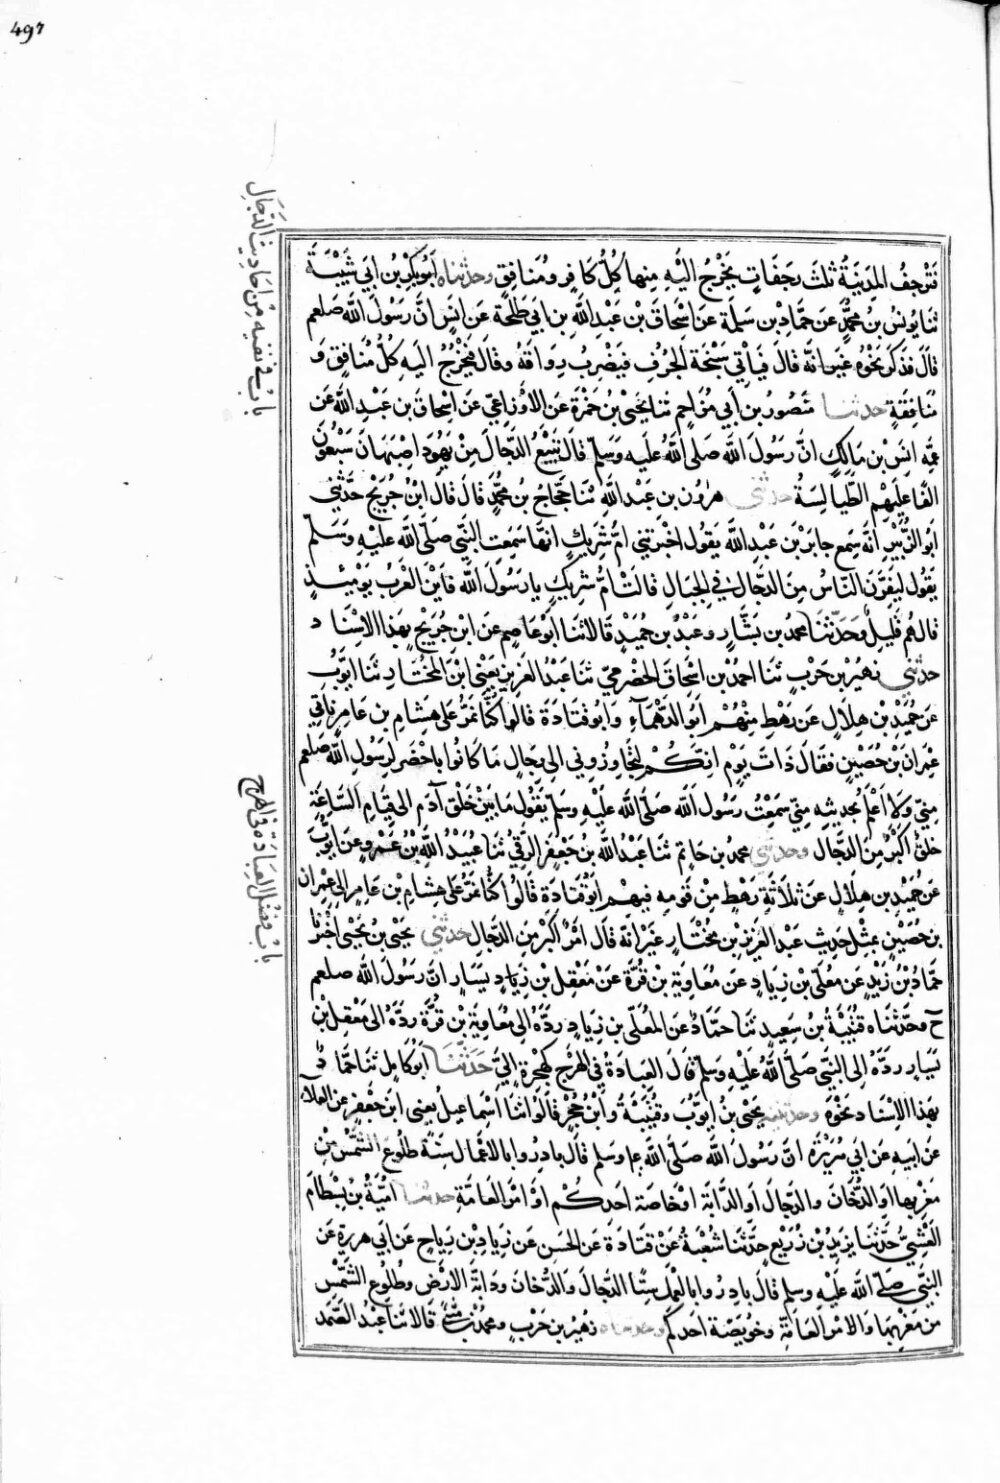 497
باب في بقية من احاديث الدجال
فَتَرجفُ المَدينَةُ ثلثَ رَجَفَاتٍ يَخْرُجُ اليْهِ مِنها كُلُّ كَافِرٍ ومُنَافِقٍ وحدثناه اَبُوبَكْرِ بْنُ اَبِي شَيْبَةَ
ثنا يونسُ بن محمدٍ عن حمّادِ بْن سَلَمَةَ عن اِسْحاقَ بْن عَبْدِ اللهِ بن اَبي طَلْحَةَ عن اَنَسٍ انَّ رَسُولَ الله صلعم
قالَ فذكرَ نَحْوَهُ غيرَ انَّه قالَ فَيَأْتي سَبْخَةَ الجُرُفِ فيَضْرِبُ رِوَاقَهُ وقالَ فيَخْرُجُ اليهِ كُلُّ مُنافِقٍ وَ
مُنَافِقَةٍ حدثنا منصُورُ بن اَبي مُزَاحِمٍ ثنا يحيى بْنُ حَمْزَةَ عَنِ الاَوْزَاعِيِّ عَن اِسْحاقَ بن عَبْدِ اللهِ عَن
عَمِّه انَسِ بْن مَالِكٍ انَّ رَسُولَ اللهِ صلى اللهُ عليه وسَلّم قالَ يَتْبَعُ الدَّجالَ مِنْ يَهُودِ اصْبَهَانَ سَبْعُونَ
الفًا عليْهِم الطَّيالِسَةُ حدثني هرُون بن عَبْدِ اللهِ ثنا حَجّاجُ بن محمَّدٍ قالَ قالَ ابْنُ جُرَيْجٍ حَدَّثني
اَبو الزُّبَيْرِ اَنَّه سَمِع جابرَ بْنَ عَبْدِ اللهِ يَقُول اخْبَرَتْني امُّ شَرِيكٍ انهَا سَمِعَت النَّبيَّ صَلَّى الله عَليْهِ وَسَلَّم
يَقُول لَيَفِرَّنَّ النّاسُ مِنَ الدّجّالِ في الجِبَالِ قالَتْ امُّ شرِيكٍ يا رسُولَ اللهِ فاَيْنَ العَرَبُ يَوْمَئِذٍ
قال هُم قَلِيلٌ وَحَدَّثنَا محمدُ بن بَشَّارٍ وعَبْدُ بْن حُمَيْدٍ قالا ثنا اَبُو عَاصِمٍ عَن ابْنِ جُرَيْجٍ بِهذا الاِسْنَادِ
حدثني زهَيْرُ بْن حَرْبٍ ثنا احمدُ بْن اِسْحاقَ الحَضْرَميّ ثنا عَبْدُ العَزِيزِ يَعْني ابْنَ المُخْتَارِ ثنا ايُّوبُ
عَن حُمَيْدِ بْن هِلالٍ عن رَهْطٍ مِنْهُم اَبُو الدَّهْمَاءِ وَابُو قَتَادَةَ قالُوا كُنَّا نَمُرُّ علَى هِشَامِ بن عَامِرٍ نأتِي
عِمْرانَ بْنَ حُصَيْنٍ فقَالَ ذاتَ يَوْمٍ اِنَّكُمْ لَتُجَاوِزُوني الى رِجالٍ مَا كانُوا باَحْضَرَ لِرَسُولِ اللهِ صلعم
مِنّي وَلا اَعْلَمَ بحَديثِهِ مِنّي سَمِعْتُ رَسُولَ اللهِ صَلَّى اللهُ عليْهِ وسَلمَ يَقُولُ مَا بَيْنَ خَلْقِ آدَم الى قِيَامِ السَّاعَةِ
خَلْقٌ اَكْبَرُ مِنَ الدَّجّالِ وحدثني محمدُ بن حَاتِمٍ ثنا عَبْدُ اللهِ بْن جَعْفَرٍ الرَّقيُّ ثنا عُبَيْدُ اللهِ بْنُ عَمْرٍو عَن اَيُّوبَ
عَن حُمَيْدِ بْن هِلالٍ عَن ثلاثَةِ رَهْطٍ مِنْ قَوْمِهِ فيهِم اَبُو قَتَادَةَ قَالُوا كُنَّا نَمُرُّ علَى هِشَامِ بْن عَامِرٍ الى عِمْرانَ
بْنِ حُصَيْنٍ بِمِثْلِ حَديثِ عَبْدِ العَزِيزِ بْنِ مُخْتَارٍ غَيْرَ انَّه قالَ اَمْرٌ اَكْبَرُ مِنَ الدَّجالِ حدثني يَحْيى بْنُ يَحْيى اخبرنا
باب فضل العبادة في الهرج
حَمّادُ بْنُ زَيْدٍ عَن مُعَلَّى بْن زِيَادٍ عَن مُعَاوِيَةَ بْن قُرَّةَ عَنْ مَعْقِلِ بْن يَسَارٍ انَّ رَسُولَ اللهِ صلعم
ح وحَدَّثناه قُتَيْبَةُ بْنُ سَعِيدٍ ثنا حَمّادٌ عَنِ المُعَلَّى بن زِيَادٍ رَدَّهُ الى مُعَاوِيَةَ بْنِ قُرَّةَ رَدَّهُ الى مَعْقِلِ بْنِ
يَسَارٍ رَدَّهُ اِلى النَّبيِّ صَلَّى اللهُ عَليْهِ وسَلّم قالَ العِبَادَةُ فِي الهَرْجِ كَهِجْرَةٍ اِلَيَّ حَدَّثنا اَبُو كَامِلٍ ثنا حَمّادٌ
بهَذا الاِسْنَادِ نَحْوَه وحدثنا يَحْيى بنُ ايُّوبَ وقُتَيْبَةُ وَابْنُ حُجْرٍ قالُوا ثنَا اِسْمَاعِيلُ يعنى ابْنَ جَعْفَرٍ عَنِ العلاء
عَن اَبِيهِ عَن اَبي هُرَيْرَةَ انَّ رَسُولَ اللهِ صَلَّى اللهُ ع م وسلم قالَ بادِرُوا بالاَعْمالِ سِتَّةً طُلُوعَ الشَّمْسِ مِنْ
مَغْرِبها اَوِ الدُّخَانَ والدَّجالَ اَو الدَّابَّةَ اوْ خاصّةَ احَدِكُمْ اَوْ اَمْرَ العَامَّةِ حدثنا اُمَيَّةُ بنُ بِسْطَامَ
العَيْشِيُّ حَدَّثنَا يزيدُ بْنُ زُرَيْعٍ حدَّثنا شُعْبَةُ عَنْ قتَادَةَ عَنِ الحَسَنِ عَن زِيَادِ بْن رِيَاحٍ عَن اَبي هريرةَ عَن
النّبيّ صلّى الله عَلَيْهِ وسلم قالَ بادِرُوا بالعَمَلِ سِتًّا الدَّجّالَ وَالدُّخَانَ ودَابَّةَ الاَرْضِ وطُلُوعَ الشَّمْسِ
مِن مَغْرِبِهَا وَالامْرَ العَامَّةَ وخُوَيْصَةَ احَدِكُم وحدثناه زهَيْرُ بن حَرْبٍ ومحمّدُ بن مثنى قالا ثنا عَبْدُ الصَّمَدِ